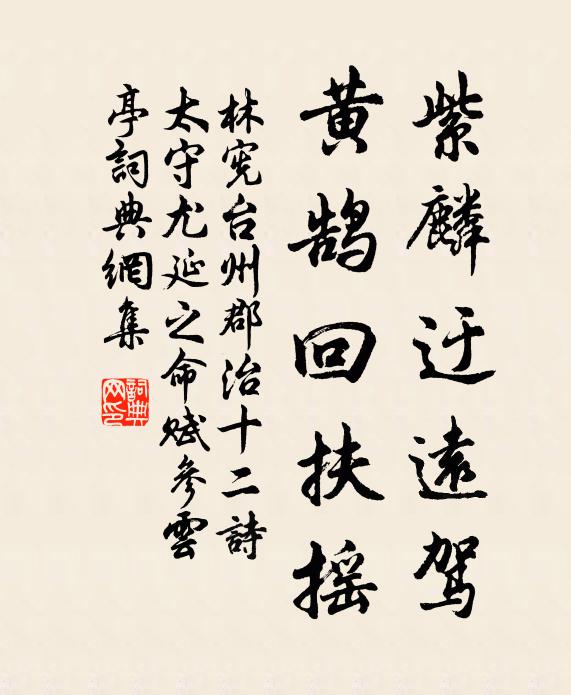 紫麟迂遠駕
黄鹄回扶摇
林宪台州郡治十二詩
太守尤延之命赋參雲
亭詞典網集
詞典网印